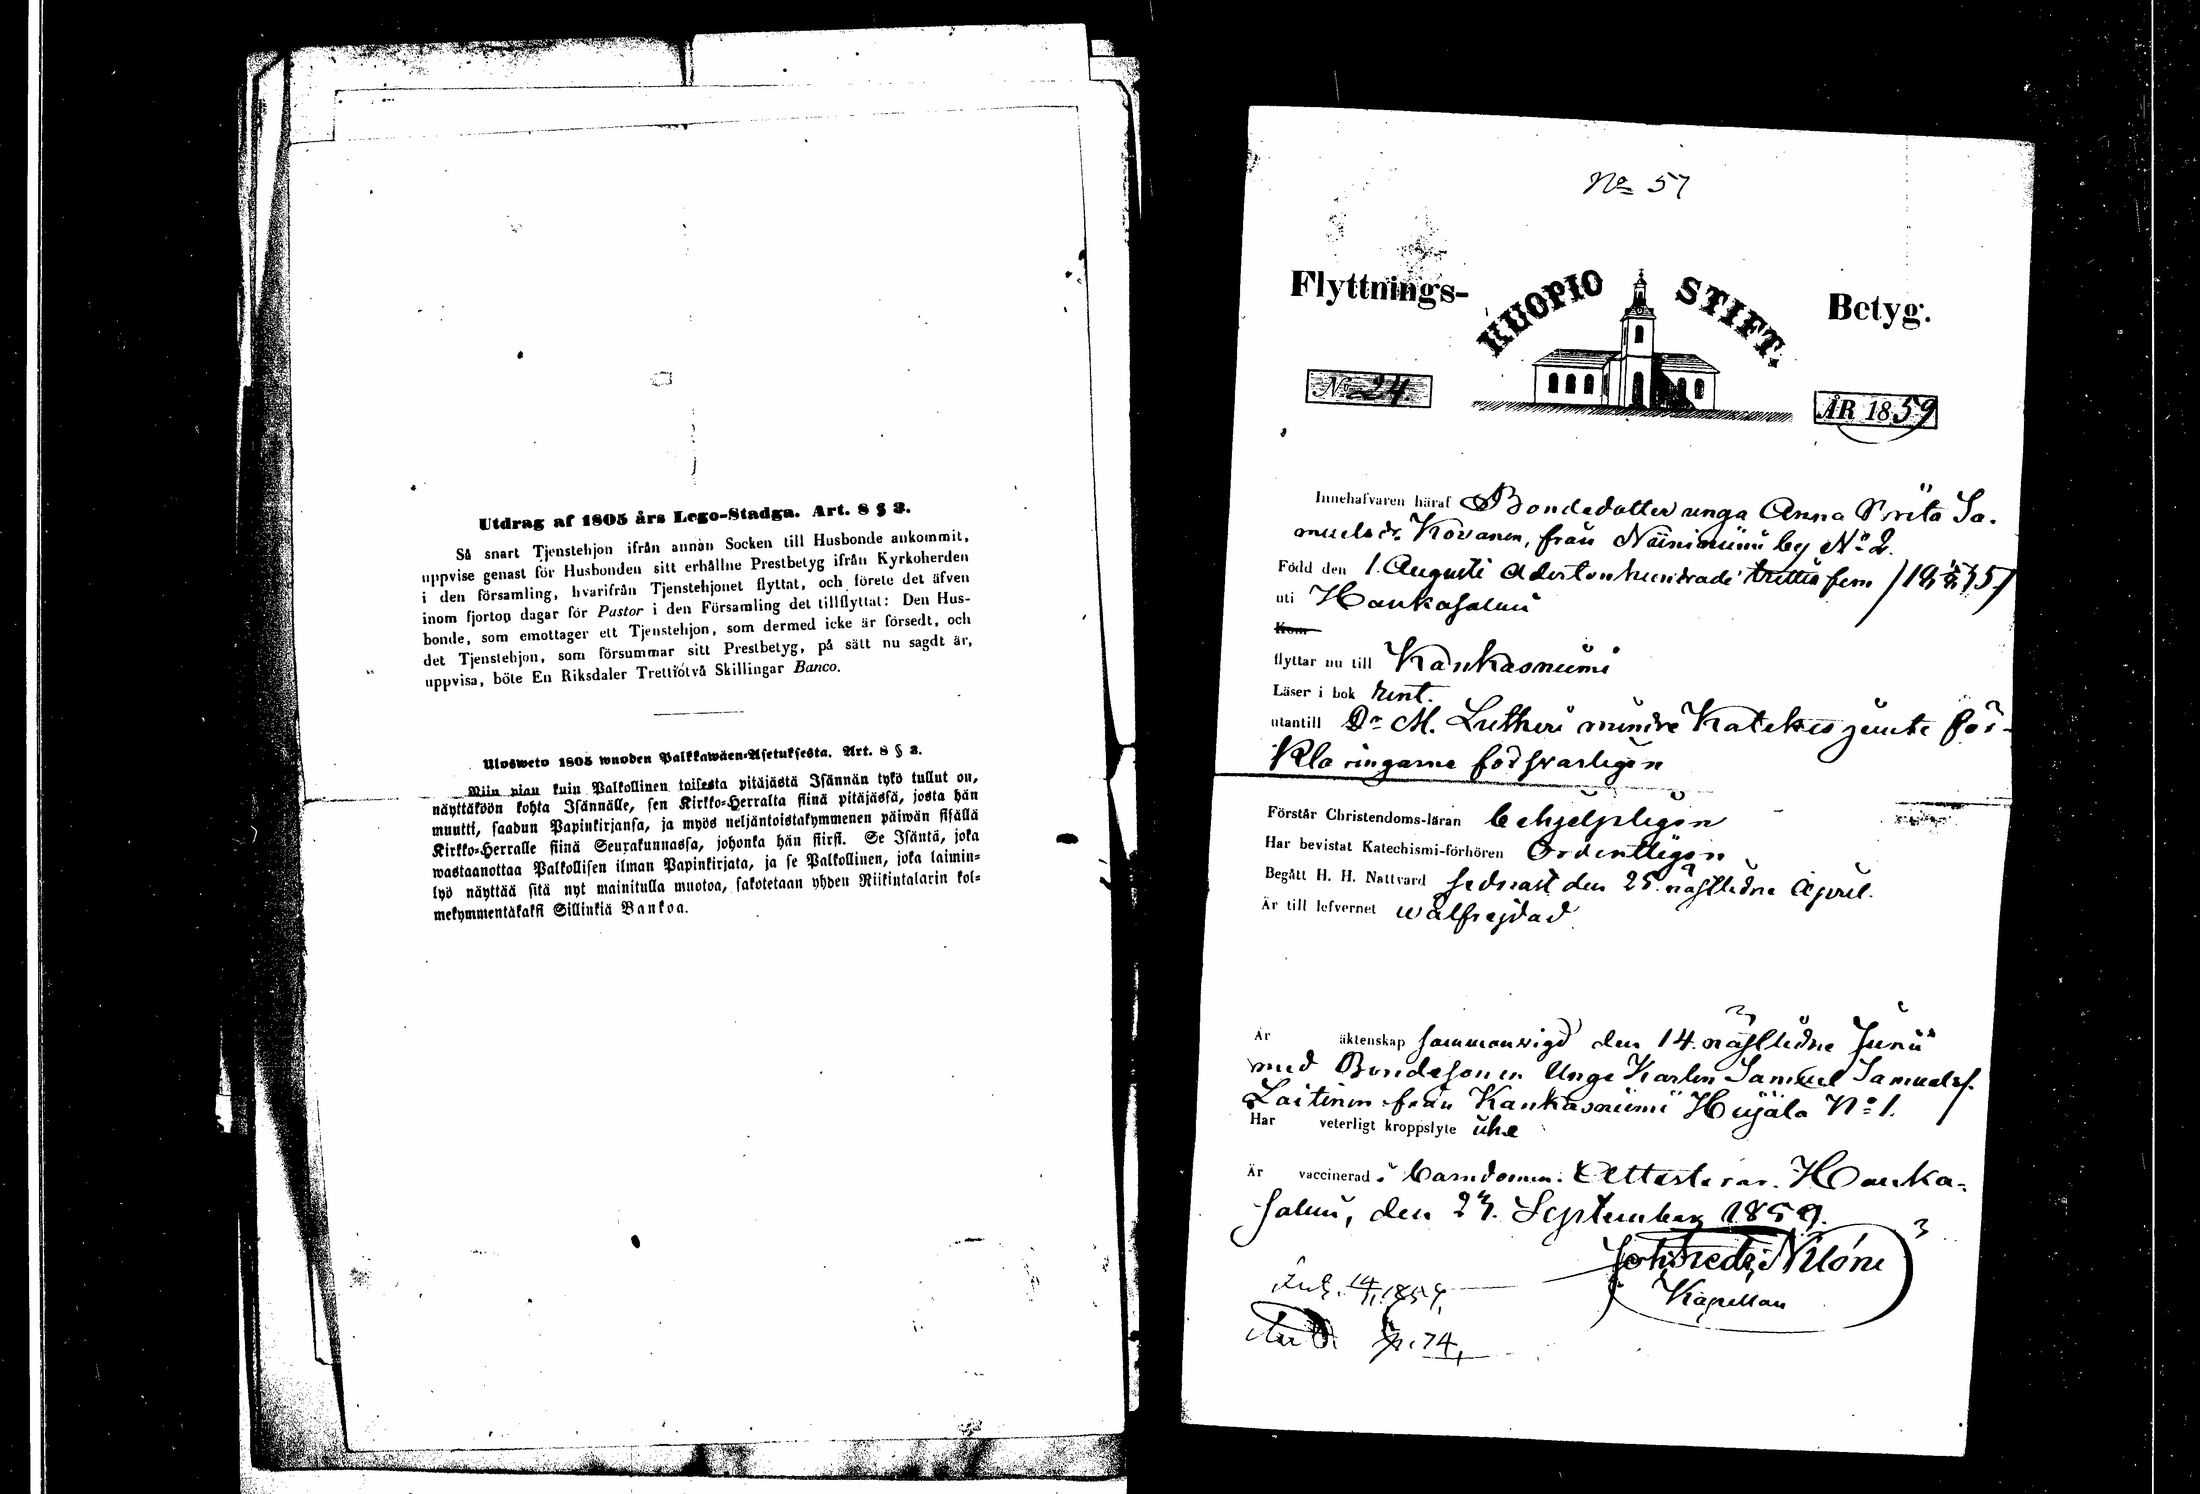 Utdrag af 1805 års Lego-Stadga. Art. 8 § 3.
Så snart Tjenstehjon ifrån annan Socken till Husbonde ankommit,
uppvise genast för Husbonden sitt erhållne Prestbetyg ifrån Kyrkoherden
i den församling, hvarifrån Tjenstehjonet flyttat, och förete det äfven
inom fjorton dagar för Pastor i den Församling det tillflyttat: Den Hus-
bonde, som emottager ett Tjenstehjon, som dermed icke är försedt, och
det Tjenstehjon, som försummar sitt Prestbetyg, på sätt nu sagdt är,
uppvisa, böte En Riksdaler Trettiotvå Skillingar Banco.
Ulosweto 1805 wuoden Palkkawäen-Asetuksesta. Art. 8 § 3.
Niin pian kuin Palkollinen toisesta pitäjästä Isännän tykö tullut on,
näyttäköön kohta Isännälle, sen Kirkko-Herralta siinä pitäjässä, josta hän
muutti, saadun Papinkirjansa, ja myös neljäntoistakymmenen päiwän sisällä
Kirkko-Herralle siinä Seurakunnassa, johonka hän siirsi. Se Isäntä, joka
wastaanottaa Palkollisen ilman Papinkirjata, ja se Palkollinen, joka laimin-
lyö näyttää sitä nyt mainitulla muotoa, sakotetaan yhden Riikintalarin kol-
mekymmentäkaksi Sillinkiä Bankoa.
No 57
Flyttnings- KUOPIO STIFT. Betyg.
No 24 ÅR 1859
Innehafvaren häraf Bondedotter unga Anna Brita Sa-
muelsdr Kovanen, från Niinimäki by No 2.
Född den 1. Augusti Adertonhundrade fem
uti Hankasalmi
Kom
flyttar nu till Kankasniemi
Läser i bok rent.
utantill Dr M. Lutheri mindre Katekes jemte för-
klaringarne försvarligen
Förstår Christendoms-läran behjelpligen
Har bevistat Katechismi-förhören Ordentligen
Begått H. H. Nattvard sednast den 25. nästledne April.
Är till lefvernet wälfrejdad
Är äktenskap sammanvigd den 14. nästledne Junii
med Bondesonen Unge Karlen Samuel Samuelss.
Laitinen från Kankasniemi No 1.
Har veterligt kroppslyte icke
Är vaccinerad i barndomen. Attesterar. Hanka-
salmi, den 27. September 1859.
Kapellan
1859,
p. 74,